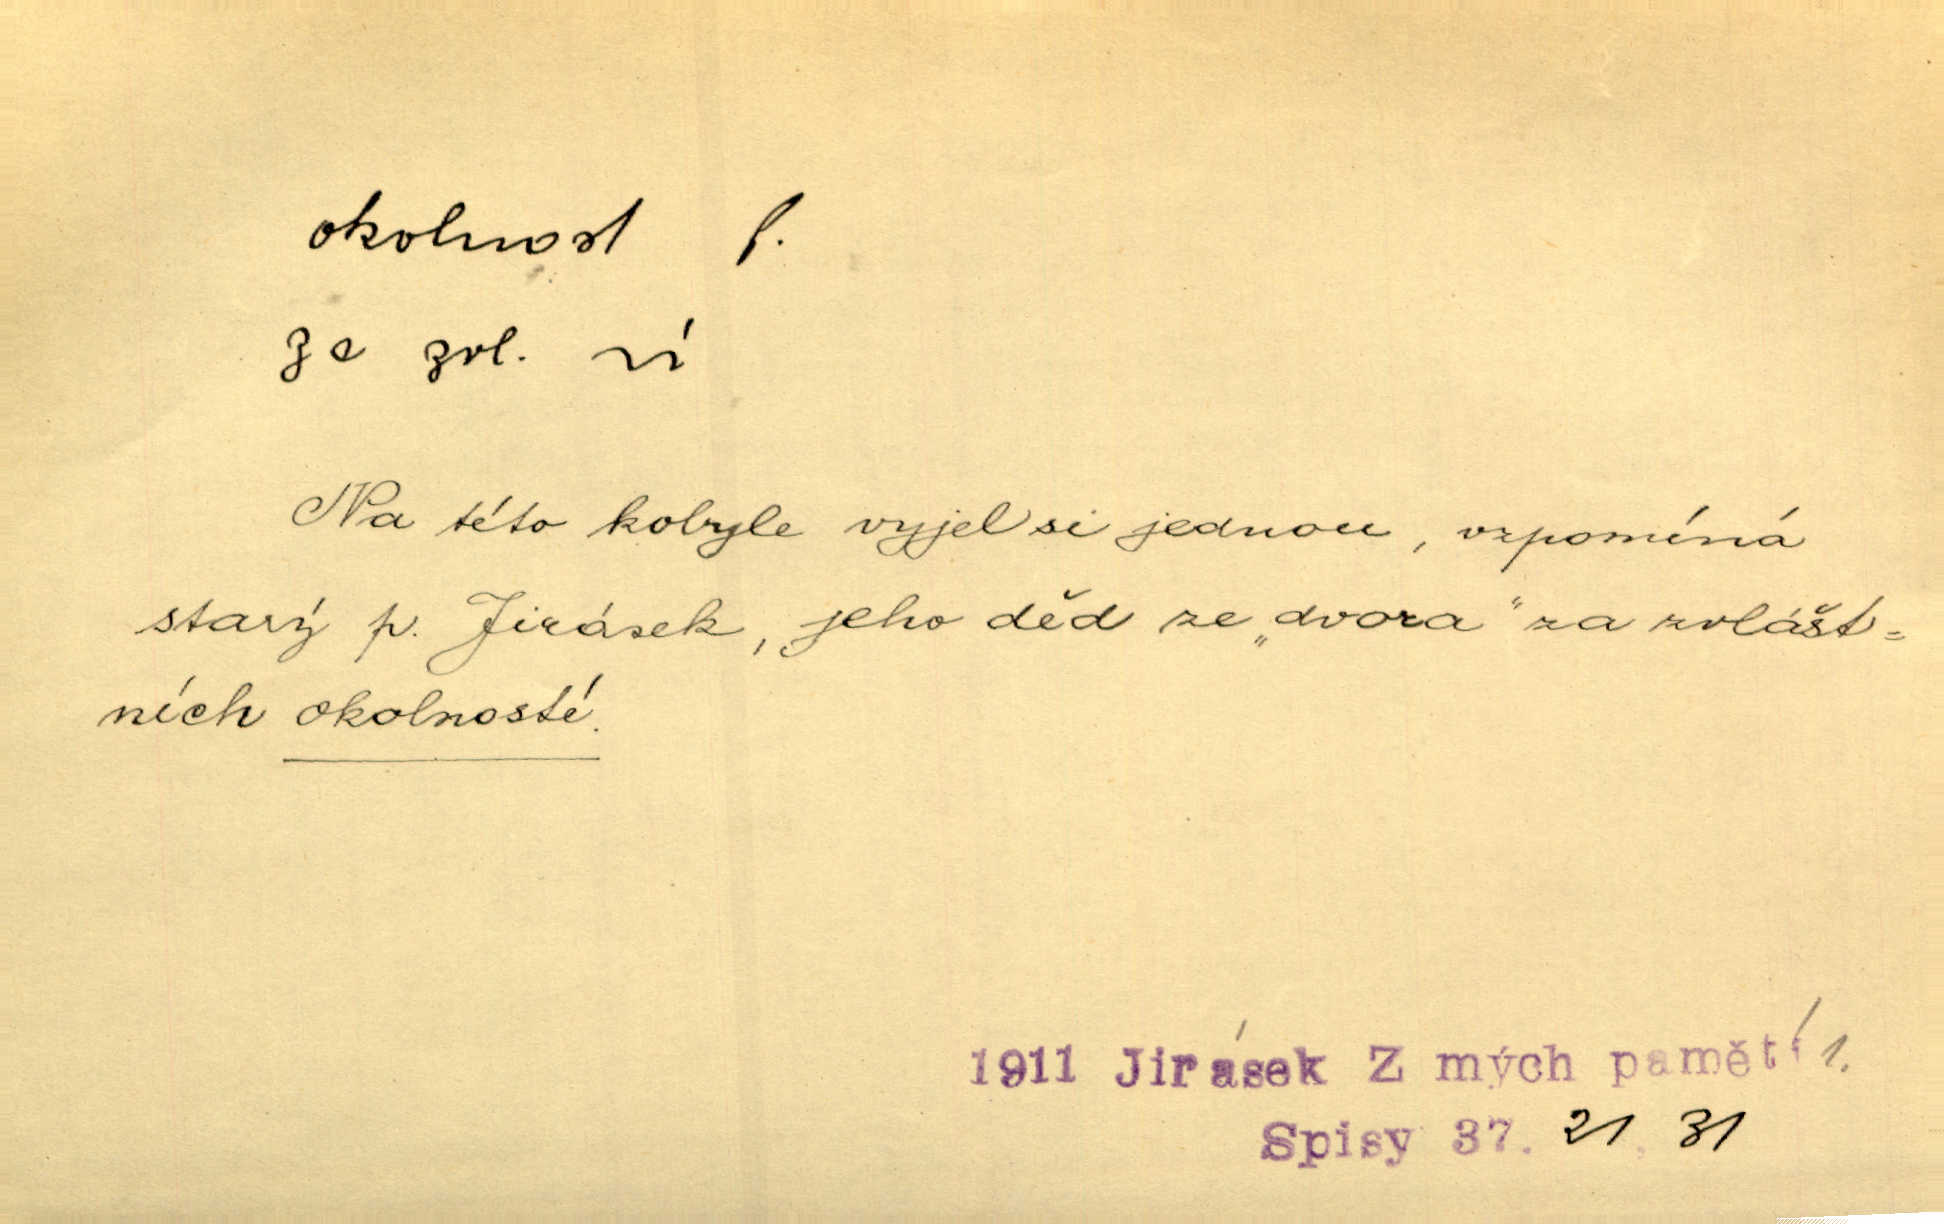 okolnost f.
za zvl. ~í
Na této kobyle vyjel si jednou, vzpomíná
starý p. Jirásek, jeho děd ze „dvora“ za zvlášt=
ních okolností.
1911 Jirásek Z mých pamětí 1.
Spisy 37. 21, 31